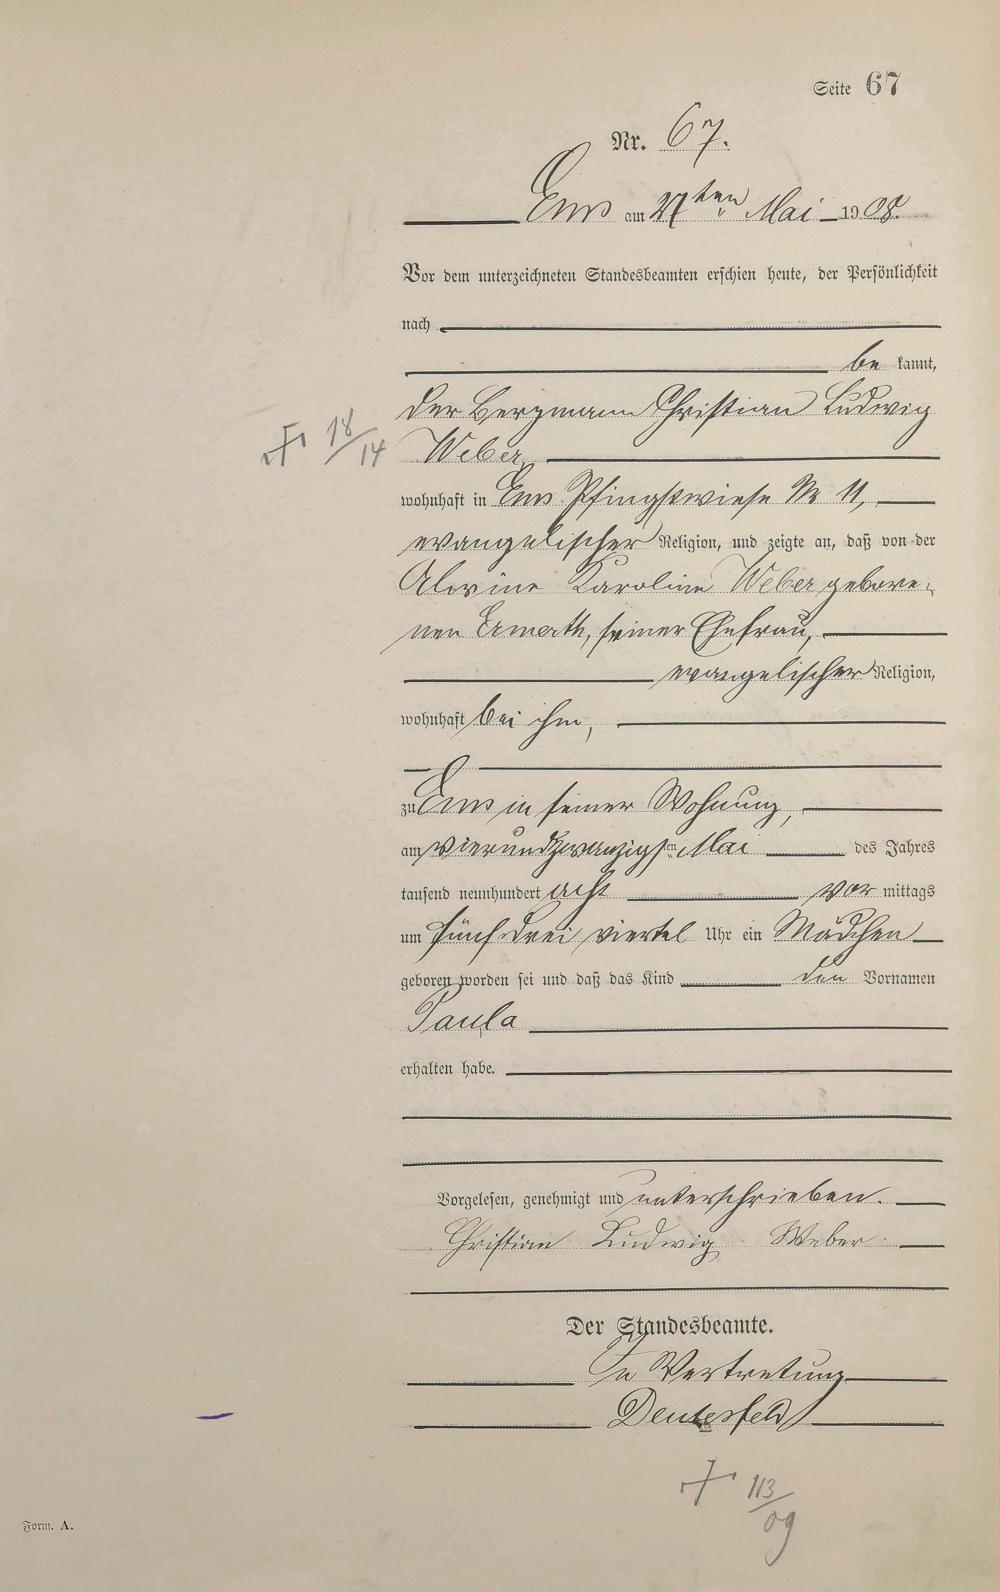 Seite 67
Nr. 67.
Ems am 27ten Mai 1908.
Vor dem unterzeichneten Standesbeamten erschien heute, der Persönlichkeit
nach
be kannt,
der Bergmann Christian Ludwig
Weber
+ 18/14
wohnhaft in Ems Pfingstwiese Nr 11,
evangelischer Religion, und zeigte an, daß von der
Alwine Karoline Weber gebore-
nen Ermerth, seiner Ehefrau,
evangelischer Religion,
wohnhaft bei ihm,
zu Ems in seiner Wohnung,
am vierundzwanzigsten Mai des Jahres
tausend neunhundert acht vor mittags
um fünf drei viertel Uhr ein Mädchen
geboren worden sei und daß das Kind den Vornamen
Paula
erhalten habe.
Vorgelesen, genehmigt und unterschrieben.
Christian Ludwig Weber
Der Standesbeamte.
In Vertretung
Deutesfeld
+ 113/09
Form. A.